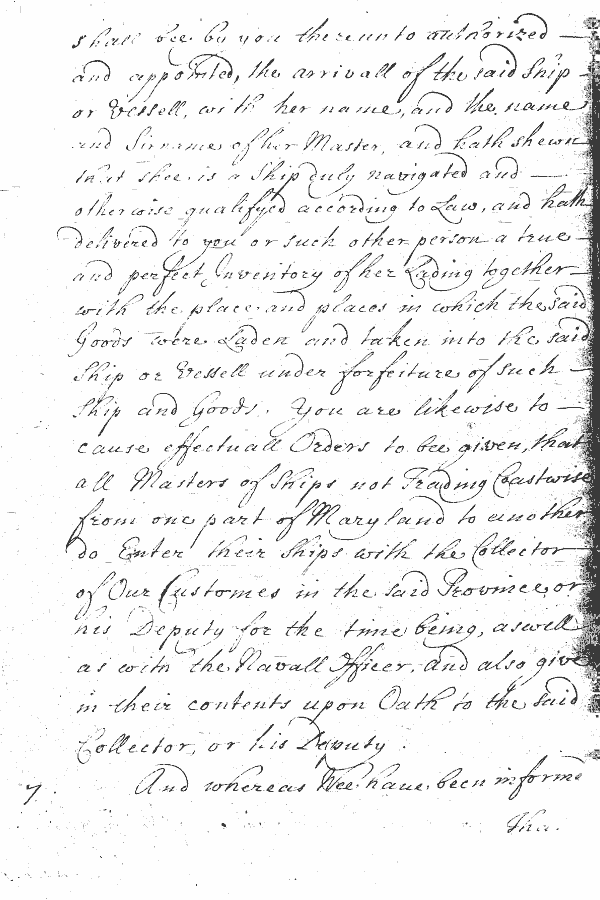 shall bee by you thereunto authorized —
and appointed, the arrivall of the said Ship -
or Vessell, with her name, and the name
and Sirname of her Master, and hath shewn
that shee is a Ship duly navigated and —
otherwise qualifyed according to Law, and hath
delivered to you or such other person a true -
and perfect Inventory of her Lading together -
with the place and places in which the said
Goods were Laden and taken into the said
Ship or Vessell under forfeiture of such —
Ship and Goods. You are likewise to —
cause effectuall Orders to bee given, that
all Masters of Ships not Trading Coastwise
from one part of Maryland to another
do Enter their Ships with the Collector
of Our Customes in the said Province, or
his Deputy for the time being, aswell
as with the Navall Officer, and also give
in their contents upon Oath to the said
Collector, or his Deputy.
7 And whereas Wee have been informe
Tha